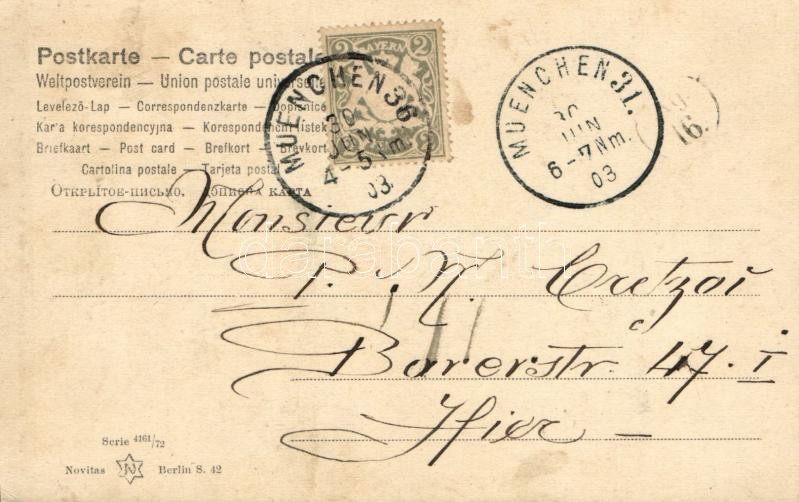 Postkarte — Carte postale
Weltpostverein — Union postale universelle
Levelező-Lap — Correspondenzkarte — Dopisnice
Karta korespondencyjna — Korespondenční lístek
Briefkaart — Post card — Brefkort — Brevkort
Cartolina postale — Tarjeta postal
Открытое-письмо. Дописна карта
2 BAYERN 2
MUENCHEN 36
30
JUN
4-5 Nm.
03.
MUENCHEN 31.
30
JUN
6-7 Nm.
03
16.
Monsieur
P. N. Cretzoi
Barerstr. 47. I
Hier —
darabanth
Serie 4161/72
Novitas N Berlin S. 42